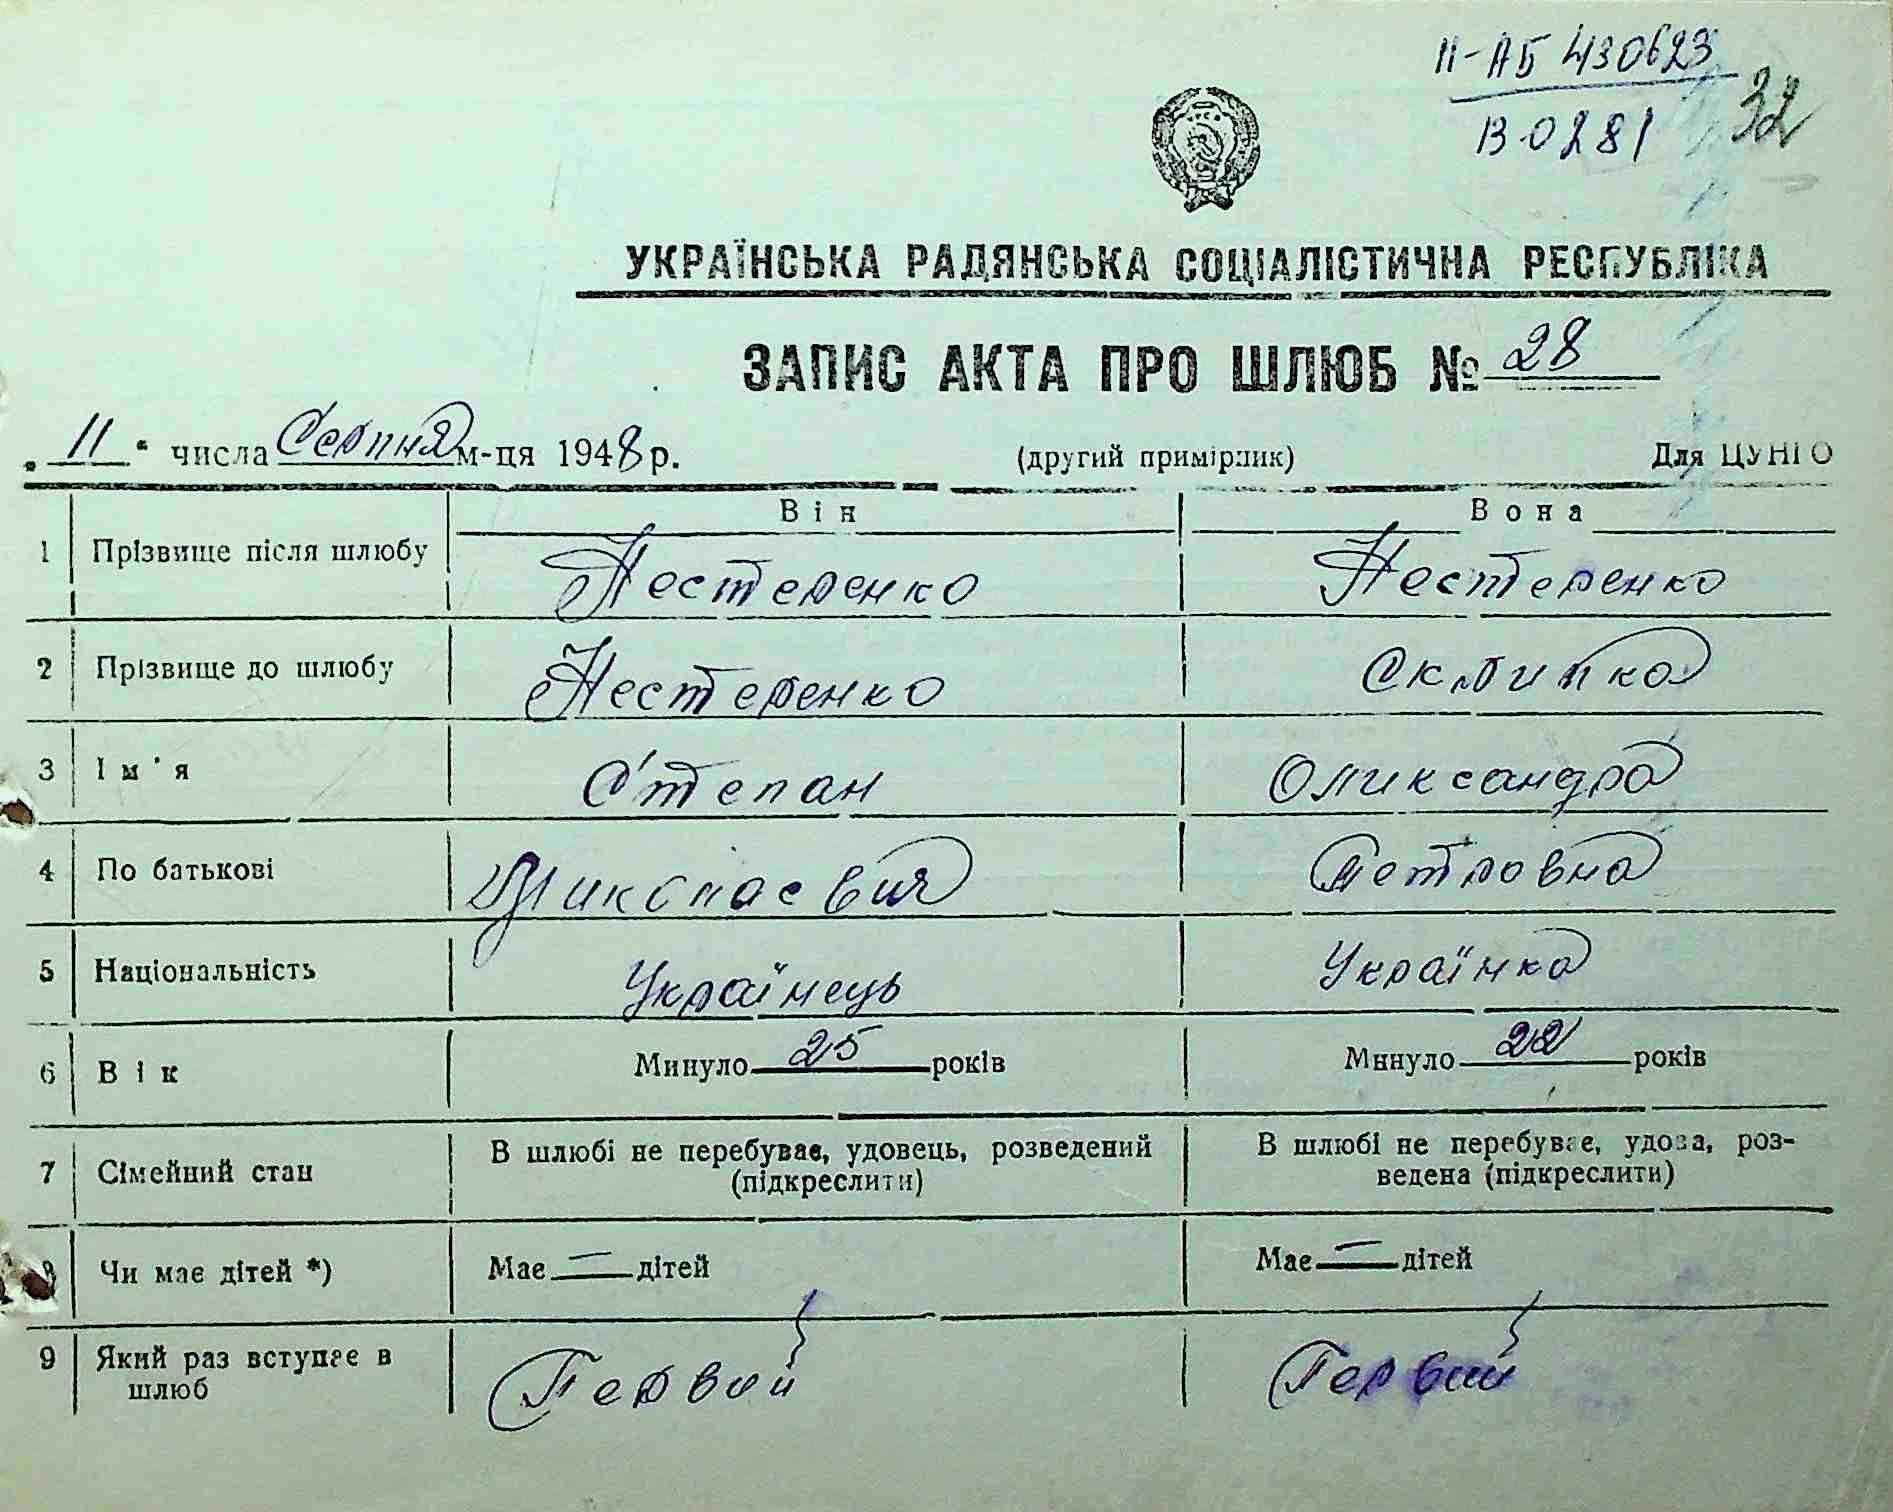 ІІ-АБ 430623
32
В 0281
УКРАЇНСЬКА РАДЯНСЬКА СОЦІАЛІСТИЧНА РЕСПУБЛІКА
ЗАПИС АКТА ПРО ШЛЮБ № 28
„ 11 “ числа Серпня м-ця 1948 р. (другий примірник) Для ЦУНГО
Він Вона
1 Прізвище після шлюбу Нестеренко Нестеренко
2 Прізвище до шлюбу Нестеренко Склипка
3 Ім'я Степан Олександра
4 По батькові Миколаевич Петровна
5 Національність Українець Українка
6 Вік Минуло 25 років Минуло 22 років
7 Сімейний стан В шлюбі не перебуває, удовець, розведений В шлюбі не перебуває, удова, роз-
(підкреслити) ведена (підкреслити)
8 Чи має дітей *) Має — дітей Має — дітей
9 Який раз вступає в Первой Первий
шлюб